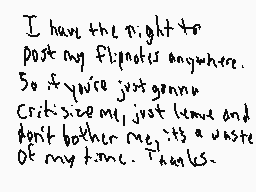 I have the right to
post my flipnotes anywhere.
So if you're just gonna
critisize me, just leave and
don't bother me, it's a waste
of my time. Thanks.